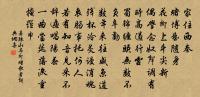 家住西秦
賭博藝隨身
花柳上鬥尖新
偶學念奴聲調
有時高遏行雲
蜀錦纏頭無數不
負辛勤
數年來往咸京道
殘杯冷炙謾消魂
衷腸事託何人
若有知音見採不
辭遍唱陽春
一曲當筵落淚重
掩羅巾
晏殊山亭柳贈歌者詞